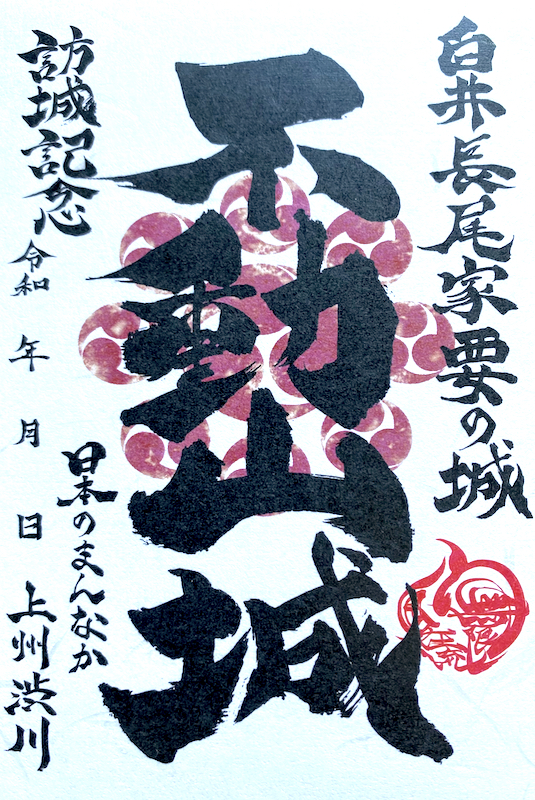 白井長尾家要の城
不動山城
訪城記念
令和 年 月 日
日本のまんなか
上州渋川